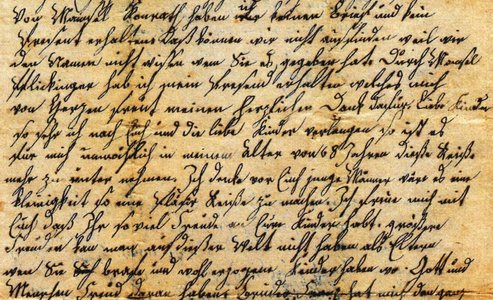 Von Mamsel Konrath haben wir keinen Brief und kein
Present erhalten. Daß können wir nicht ausfinden weil wir
den Namen nicht wissen wem Sie es gegeben hate. Durch Mamsel
Flickinger hab ich mein Present erhalten welches mich
von Herzen freut meinen herzlichen Dank dafür. Liebe Kinder
so sehr ich nach Euch und die liebe Kinder verlangen so ist es
für mich unmöchlich in meinem Alter von 68 Jahren dieße Reiße
mehr zu unter nehmen. Ich denke vor Euch junge Männer wäre es eine
Kleinigkeit so eine Reiße zu machen. Ich freue mich mit
Euch daß Ihr so viel Freude an Eure Kinder habt. größere
Freuden kan man auf dießer Welt nicht haben als Eltern
wen Sie brafe und wohl erzogene Kinder haben wo Gott und
Menschen Freud daran haben. hat mich den ganz